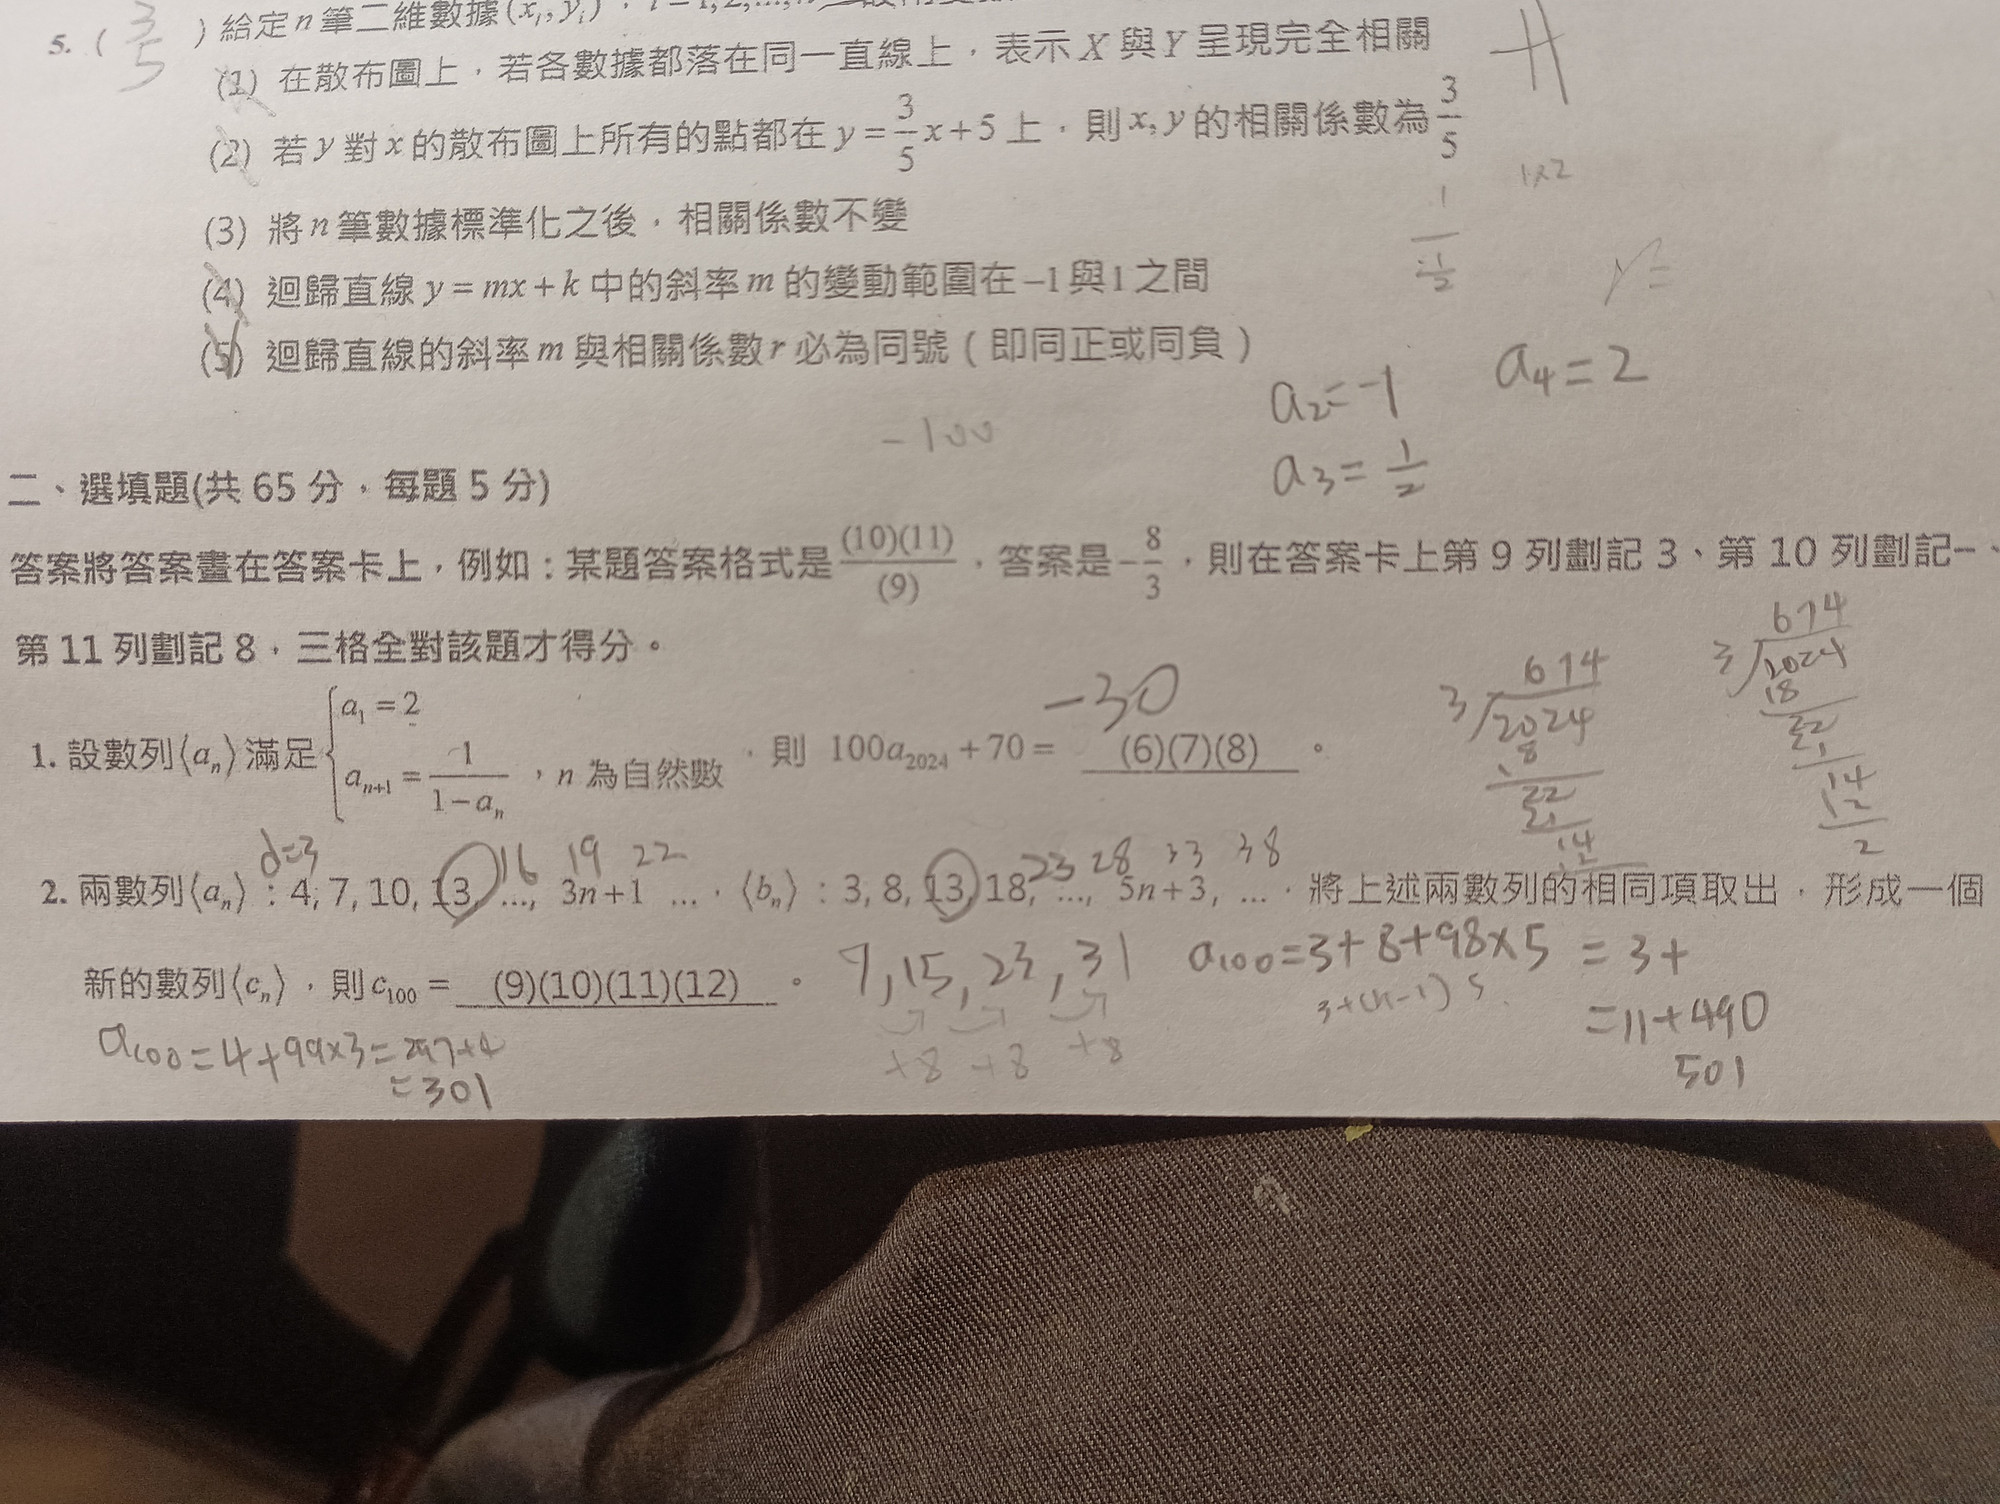 5. ( 3 5 ) 給定 n 筆二維數據 (xᵢ, yᵢ)，i = 1, 2, ...,
(1) 在散布圖上，若各數據都落在同一直線上，表示 X 與 Y 呈現完全相關
(2) 若 y 對 x 的散布圖上所有的點都在 y = 3/5 x + 5 上，則 x, y 的相關係數為 3/5
1×2
(3) 將 n 筆數據標準化之後，相關係數不變
y =
(4) 迴歸直線 y = mx + k 中的斜率 m 的變動範圍在 –1 與 1 之間
(5) 迴歸直線的斜率 m 與相關係數 r 必為同號（即同正或同負）
a₂ = -1 a₄ = 2
-100
a₃ = 1/2
二、選填題(共 65 分，每題 5 分)
答案將答案畫在答案卡上，例如：某題答案格式是 (10)(11)/(9)，答案是 -8/3，則在答案卡上第 9 列劃記 3、第 10 列劃記−、
第 11 列劃記 8，三格全對該題才得分。
1. 設數列⟨aₙ⟩滿足 { a₁ = 2
aₙ₊₁ = 1/(1−aₙ)，n 為自然數，則 100a₂₀₂₄ + 70 = (6)(7)(8)。
-30
674
3 2024
18
22
21
14
12
674
3 2024
18
22
21
14
12
2
d=3 16 19 22 23 28 33 38
2. 兩數列⟨aₙ⟩：4, 7, 10, 13, ..., 3n+1 ...，⟨bₙ⟩：3, 8, 13, 18, ..., 5n+3, ...，將上述兩數列的相同項取出，形成一個
新的數列⟨cₙ⟩，則 c₁₀₀ = (9)(10)(11)(12)。
7, 15, 23, 31
+8 +8 +8
a₁₀₀ = 3+8+98×5 = 3+
3+(n-1) 5
= 11+490
501
a₁₀₀ = 4+99×3 = 297+4
= 301